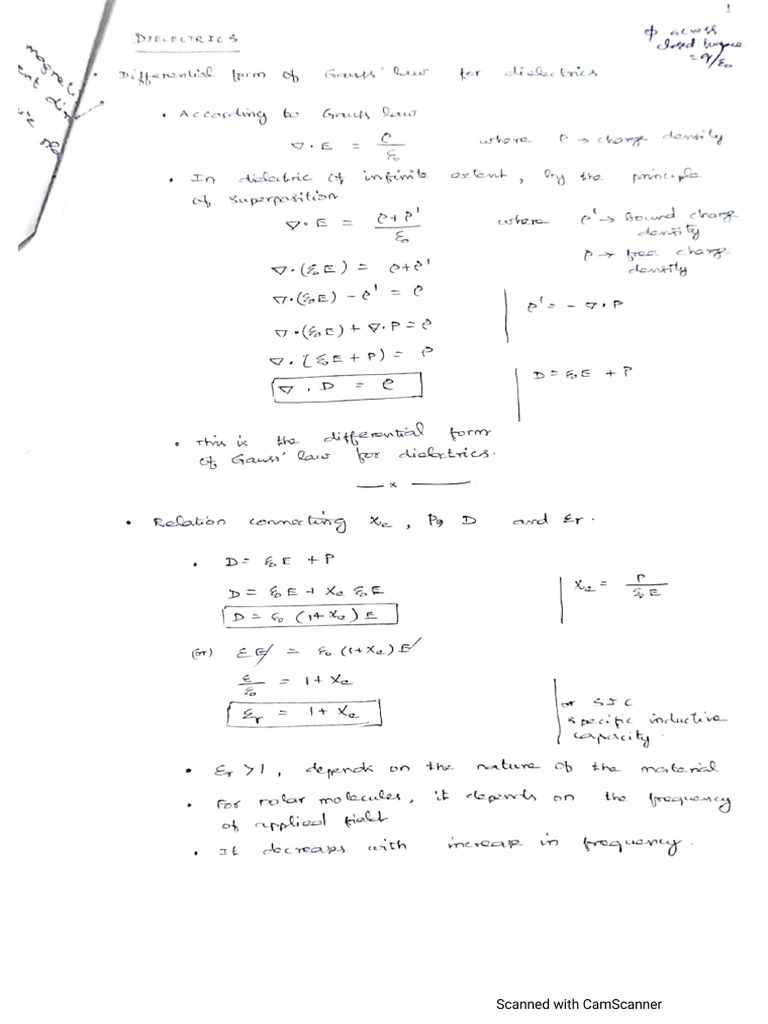 1
DIELECTRICS
φ across
closed surface
= q/ε₀
magnet
• Differential form of Gauss' law for dielectrics
• According to Gauss law
∇·E = ρ/ε₀ where ρ → charge density
• In dielectric of infinite extent, by the principle
of superposition
∇·E = ρ+ρ'/ε₀ where ρ' → Bound charge
density
ρ → free charge
density
∇·(ε₀E) = ρ+ρ'
∇·(ε₀E) - ρ' = ρ
ρ' = -∇·P
∇·(ε₀E) + ∇·P = ρ
∇·(ε₀E + P) = ρ
D = ε₀E + P
∇·D = ρ
• This is the differential form
of Gauss' law for dielectrics.
— x —
• Relation connecting χe, P, D and εr.
• D = ε₀E + P
D = ε₀E + χe ε₀E
χe = P/ε₀E
D = ε₀ (1+χe) E
(or) εE = ε₀ (1+χe) E
ε/ε₀ = 1 + χe
εr = 1 + χe
or SIC
specific inductive
capacity.
• εr >1, depends on the nature of the material
• For polar molecules, it depends on the frequency
of applied field
• It decreases with increase in frequency.
Scanned with CamScanner